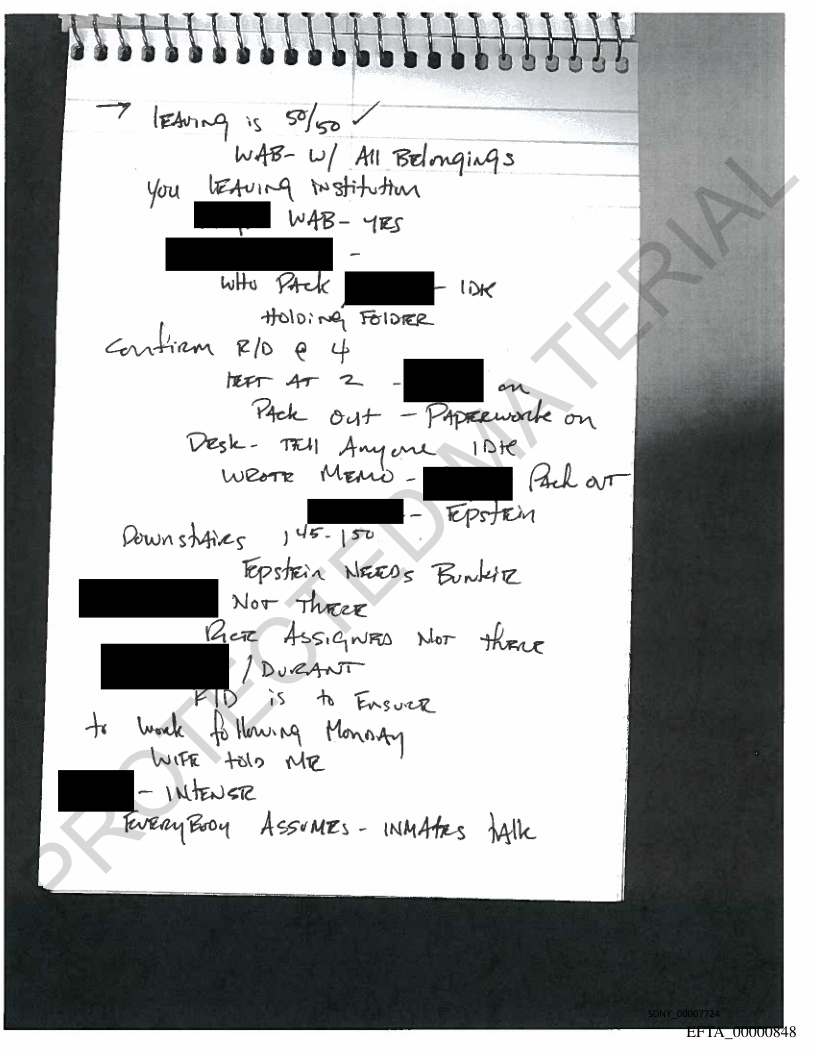 → LEAVING is 50/50 ✓
WAB- W/ All Belongings
you LEAVING INstitution
WAB- YES
-
WHO PAck - IDK
HOLDING FOLDER
Confirm R/D @ 4
LEFT AT 2 - on
PAck out - PAPERwork on
Desk- TEll Anyone IDK
WROTE MEMO - PAck OUT
- EpstEiN
DownstAiRs 145-150
EpstEin NEEDs BunkiE
NOT THERE
ASSIGNED NOT tHERE
/ DURANT
R/D is to EnsuRE
to work following MONDAY
WIFE told ME
- INTENSE
EVERyBODy ASSUMES - INMATES tAlk
PROTECTED MATERIAL
SDNY_00007724
EFTA_00000848